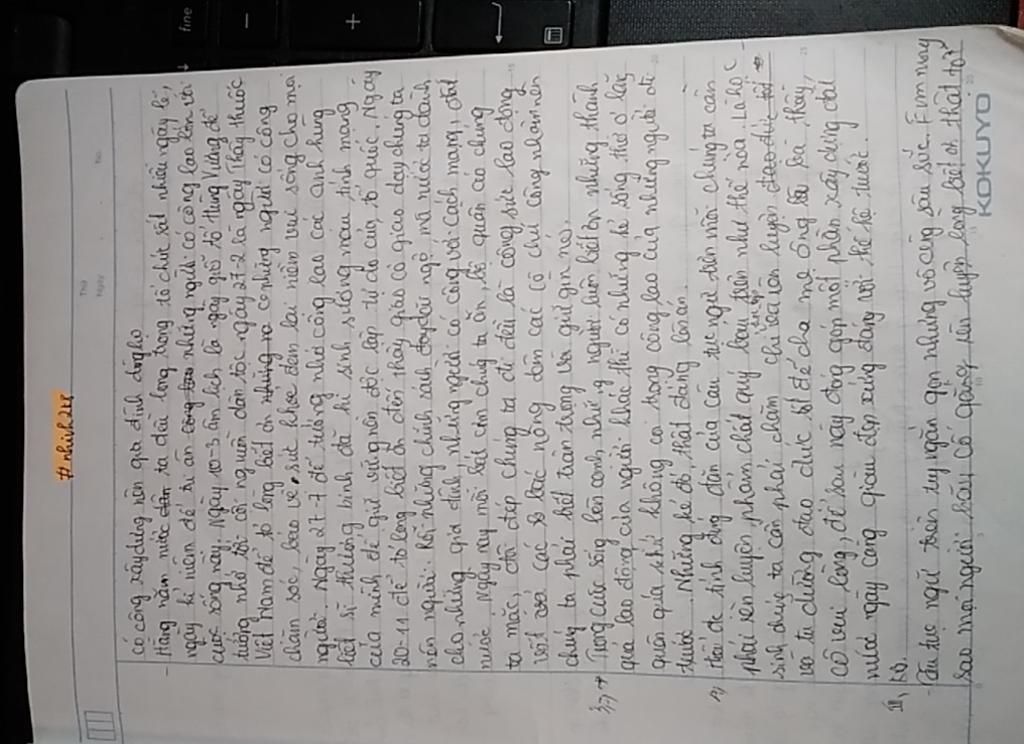 fine
Thứ
Ngày
No.
# nhinh28
có công xây dựng nên gia đình dòng họ
- Hàng năm nước ta đều long trọng tổ chức rất nhiều ngày lễ,
ngày kỉ niệm để tri ân những người có công lao lớn với
cuộc sống này. Ngày 10-3 âm lịch là ngày giỗ tổ Hùng Vương để
tưởng nhớ tới cội nguồn dân tộc ngày 27-2 là ngày Thầy thuốc
Việt Nam để tỏ lòng biết ơn những người có công
chăm sóc, bảo vệ, sức khỏe đem lại niềm vui sống cho mọi
người. Ngày 27-7 để tưởng nhớ công lao các anh hùng
liệt sĩ thương binh đã hi sinh xương máu tính mạng
của mình để giữ vững nền độc lập tự do của tổ quốc, Ngày
20-11 để tỏ lòng biết ơn đến thầy giáo cô giáo dạy chúng ta
nên người. Rồi những chính sách đãi ngộ mà nước ta dành
cho những gia đình, những người có công với cách mạng, đất
nước. Ngày nay mỗi bát cơm chúng ta ăn, bộ quần áo chúng
ta mặc, đôi dép chúng ta đi đều là công sức lao động
vất vả các bác nông dân các cô chú công nhân nên
chúng ta phải biết trân trọng và giữ gìn nó.
Trong cuộc sống bên cạnh những người luôn biết ơn những thành
quả lao động của người khác thì có những kẻ sống thờ ơ lãng
quên quá khứ không coi trọng công lao của những người đi
trước. Những kẻ đó thật đáng lên án.
Thấy được tính đúng đắn của câu tục ngữ trên mỗi chúng ta cần
phải rèn luyện phẩm chất quý báu trên như thế nào. Là học
sinh chúng ta cần phải chăm chỉ rèn luyện
và tu dưỡng đạo đức để cha mẹ ông bà thầy,
cô vui lòng, để sau này đóng góp một phần xây dựng đất
nước ngày càng giàu đẹp xứng đáng với thế hệ trước.
III, KB.
- Câu tục ngữ trên tuy ngắn gọn nhưng vô cùng sâu sắc. Em mong
sao mọi người hãy cố gắng rèn luyện lòng biết ơn thật tốt
KOKUYO